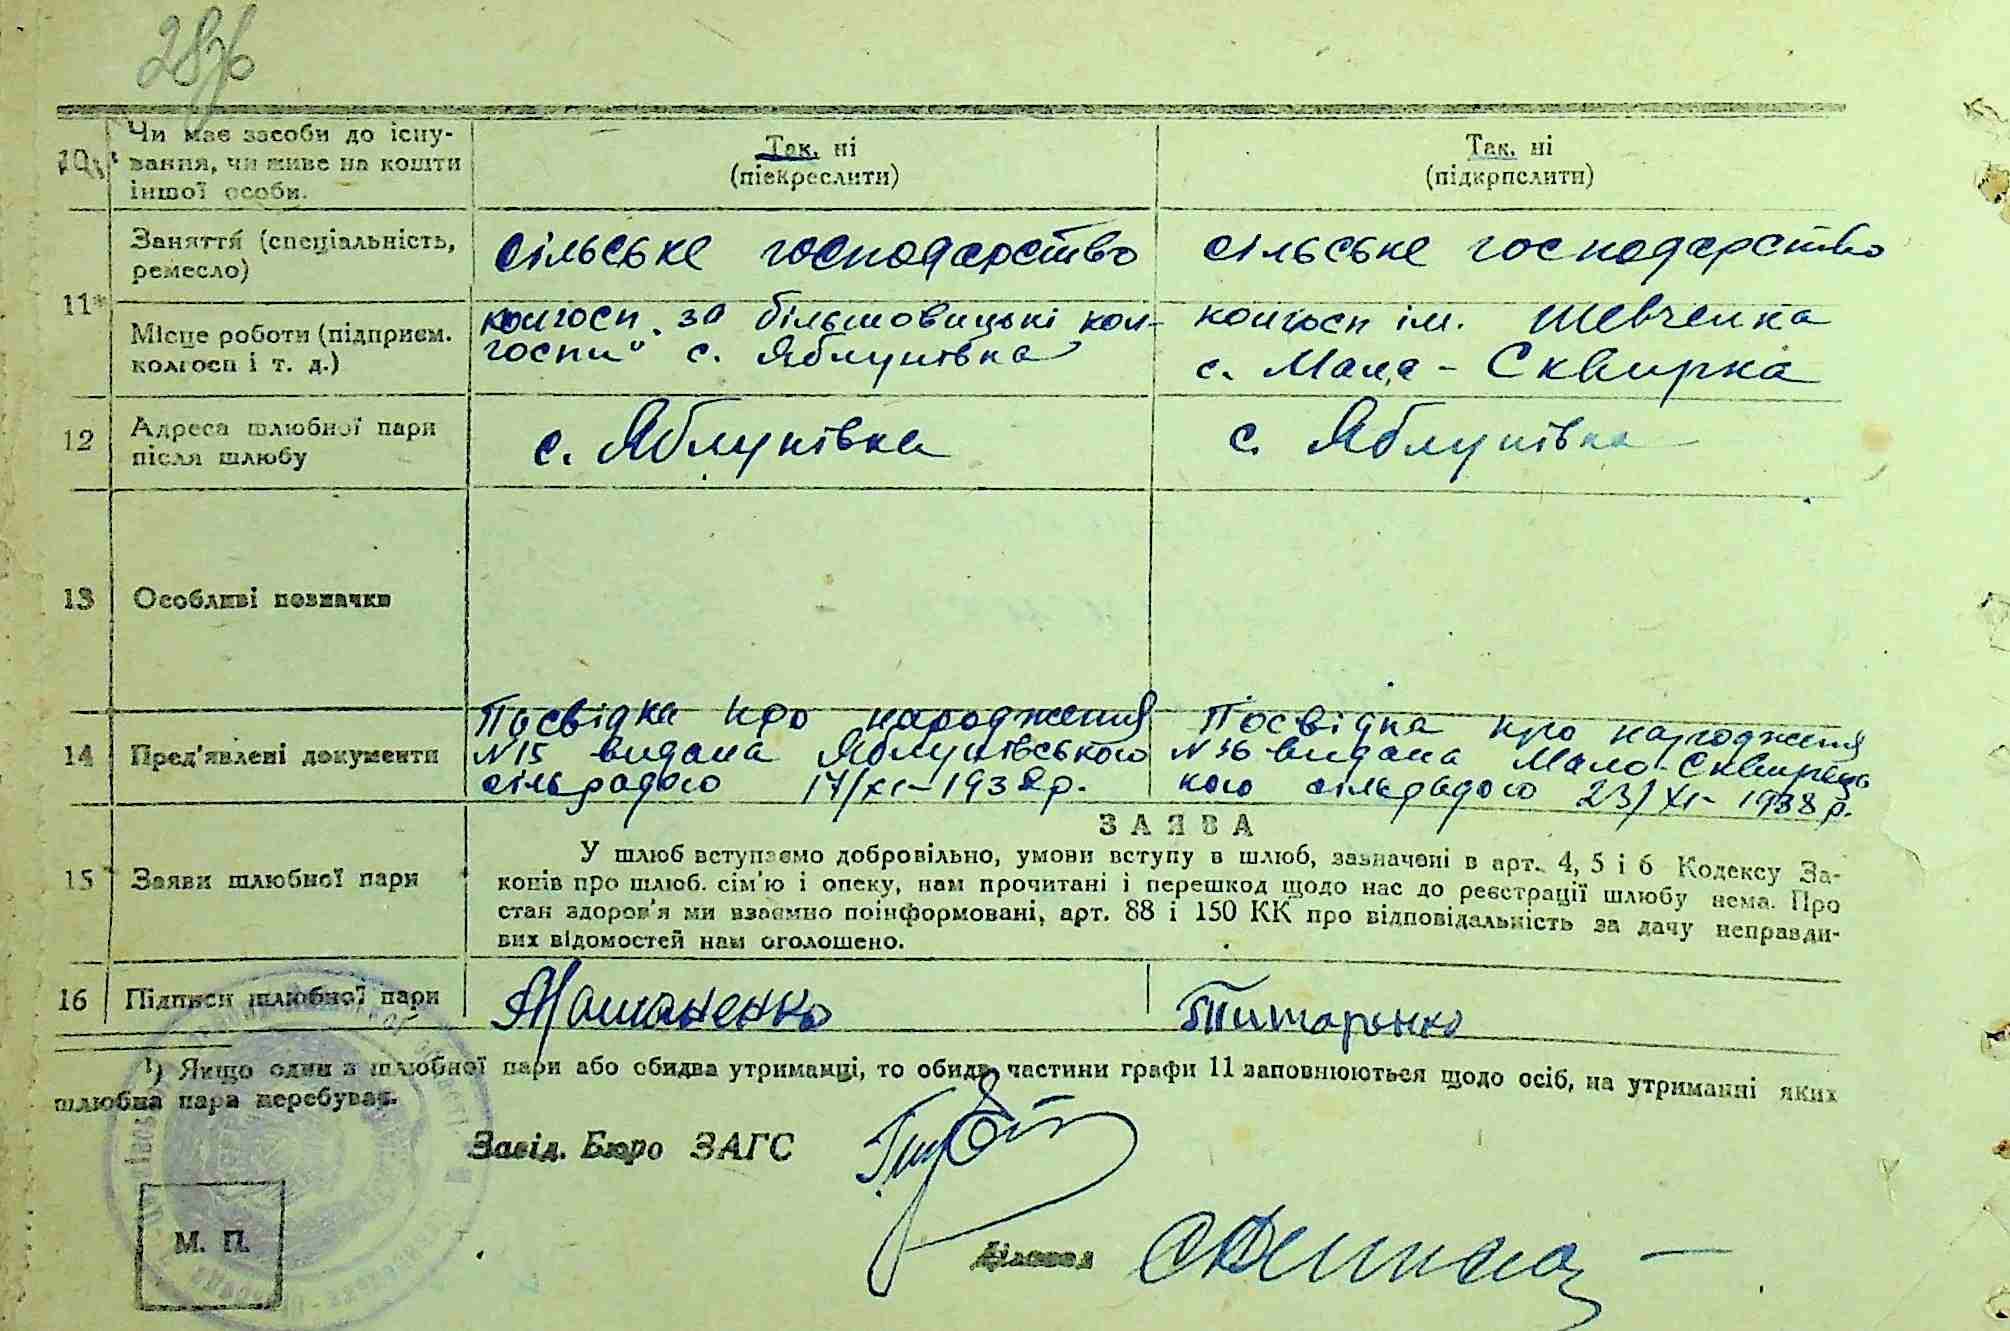 10
Чи має засоби до існу-
вання, чи живе на кошти
іншої особи.
Так, ні
(підкреслити)
Так, ні
(підкрпслити)
11
Заняття (спеціальність,
ремесло)
сільське господарство
сільське господарство
Місце роботи (підприєм.
колгосп і т. д.)
колгосп „за більшовицькі кол-
госпи" с. Яблунівка
колгосп ім. Шевченка
с. Мала - Сквирка
12
Адреса шлюбної пари
після шлюбу
с. Яблунівка
с. Яблунівка
13
Особливі позначки
14
Пред'явлені документи
Посвідка про народження
N15 видана Яблунівською
сільрадою 17/XI-1938р.
Посвідка про народження
N 36 видана Мало-Сквирсь
кою сільрадою 23/XI-1938р.
15
Заяви шлюбної пари
ЗАЯВА
У шлюб вступаємо добровільно, умови вступу в шлюб, зазначені в арт. 4, 5 і 6 Кодексу За-
конів про шлюб. сім'ю і опеку, нам прочитані і перешкод щодо нас до реєстрації шлюбу нема. Про
стан здоров'я ми взаємно поінформовані, арт. 88 і 150 КК про відповідальність за дачу неправди-
вих відомостей нам оголошено.
16
Підписи шлюбної пари
Титаренко
¹) Якщо один з шлюбної пари або обидва утриманці, то обидві частини графи 11 заповнюються щодо осіб, на утриманні яких
шлюбна пара перебуває.
Завід. Бюро ЗАГС
М. П.
Діловод